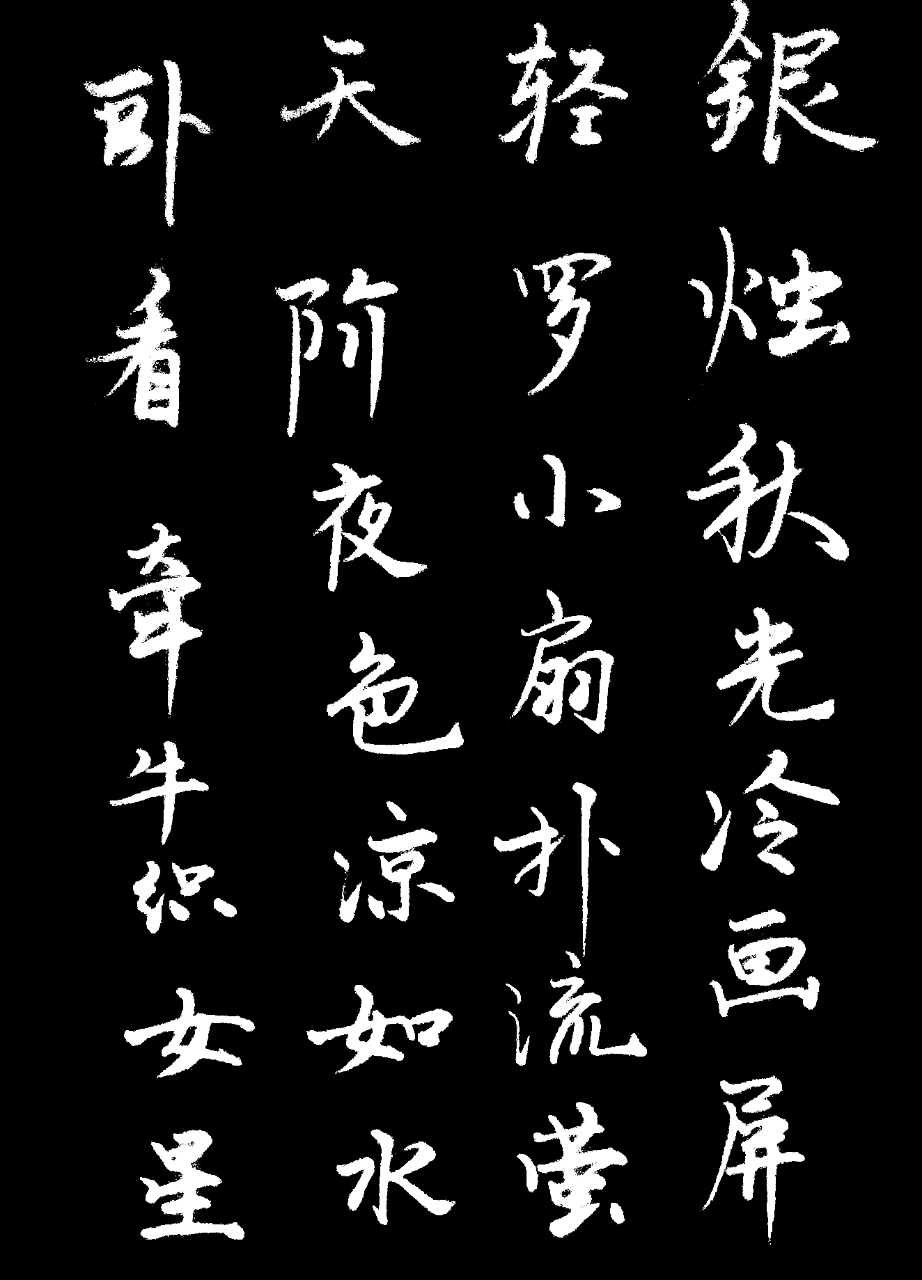 銀烛秋光冷画屏
轻罗小扇扑流萤
天阶夜色凉如水
卧看牵牛织女星